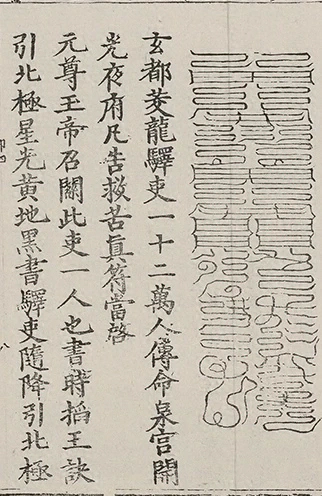 玄都菱龍驛吏一十二萬人傳命泉宮開
光夜府凡告救苦真符當啓
元尊王帝召關此吏一人也書時掐王訣
引北極星光黃地黑書驛吏隨降引北極